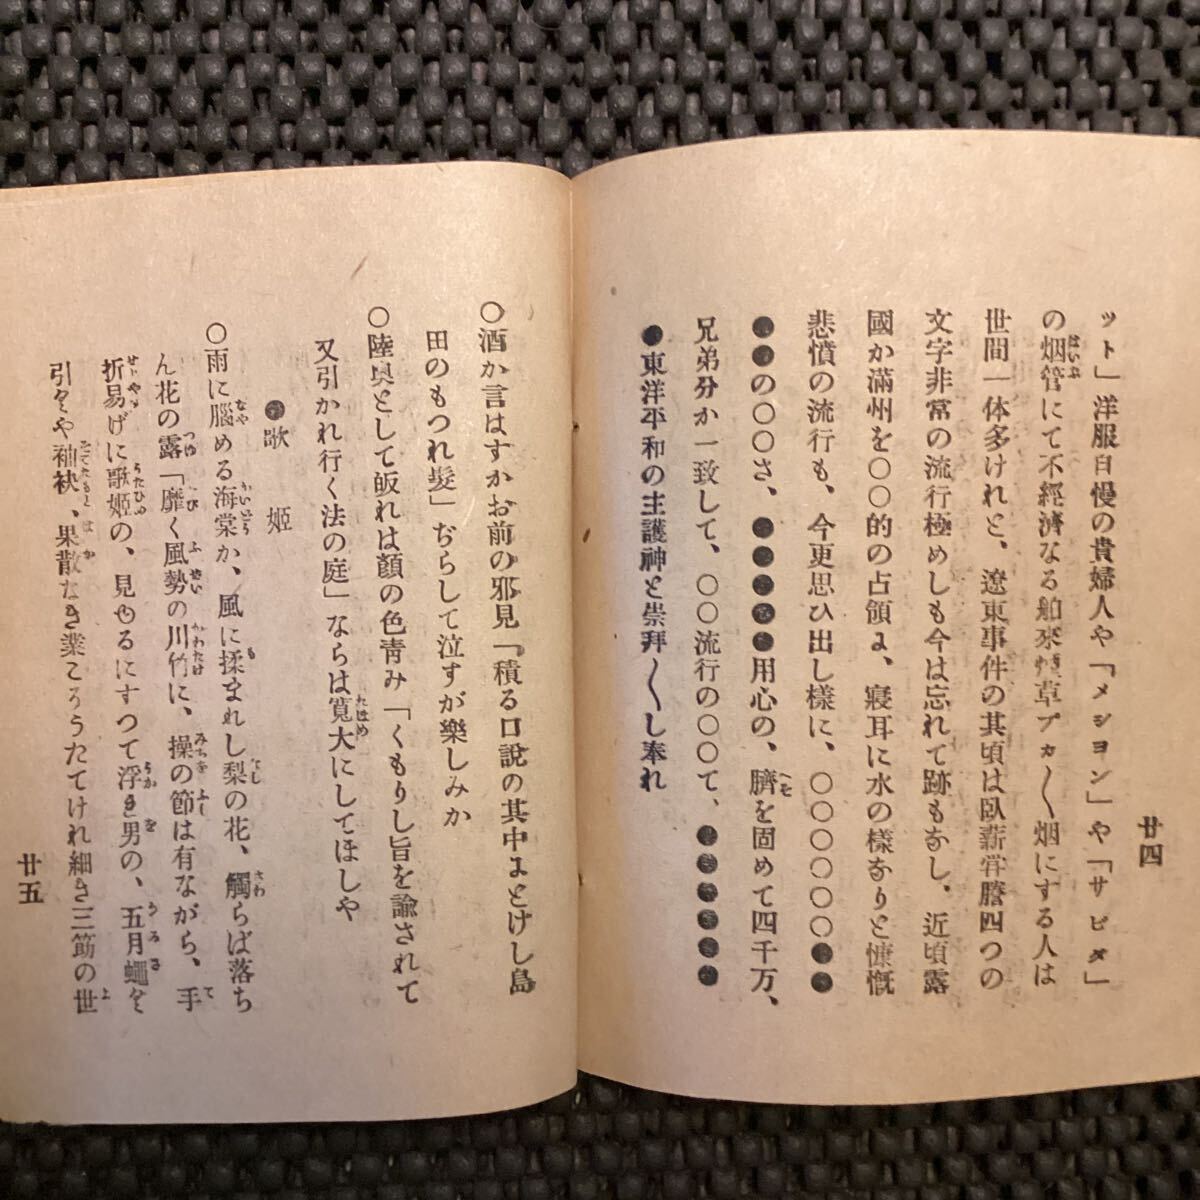 廿四
ット」洋服自慢の貴婦人や「メション」や「サビタ」
の烟管にて不經濟なる舶來煙草プカ〱烟にする人は
世間一体多けれと、遼東事件の其頃は臥薪甞膽四つの
文字非常の流行極めしも今は忘れて跡もなし、近頃露
國か滿州を〇〇的の占領よ、寢耳に水の樣なりと慷慨
悲憤の流行も、今更思ひ出し樣に、〇〇〇〇〇〇●●
●●の〇〇さ、●●●●●●用心の、臍を固めて四千万、
兄弟分か一致して、〇〇流行の〇〇て、●●●●●●●
●東洋平和の主護神と崇拜〱し奉れ
〇酒か言はすかお前の邪見「積る口說の其中よとけし島
田のもつれ髮」ぢらして泣すが樂しみか
〇陸奥として皈れは顔の色靑み「くもりし旨を諭されて
又引かれ行く法の庭」ならは寬大にしてほしや
●歌姬
〇雨に腦める海棠か、風に揉まれし梨の花、觸らば落ち
ん花の露「靡く風勢の川竹に、操の節は有ながら、手
折易げに歌姬の、見やるにすつて浮き男の、五月蠅々
引々や袖袂、果散なき業こうたてけれ細き三筋の世
廿五